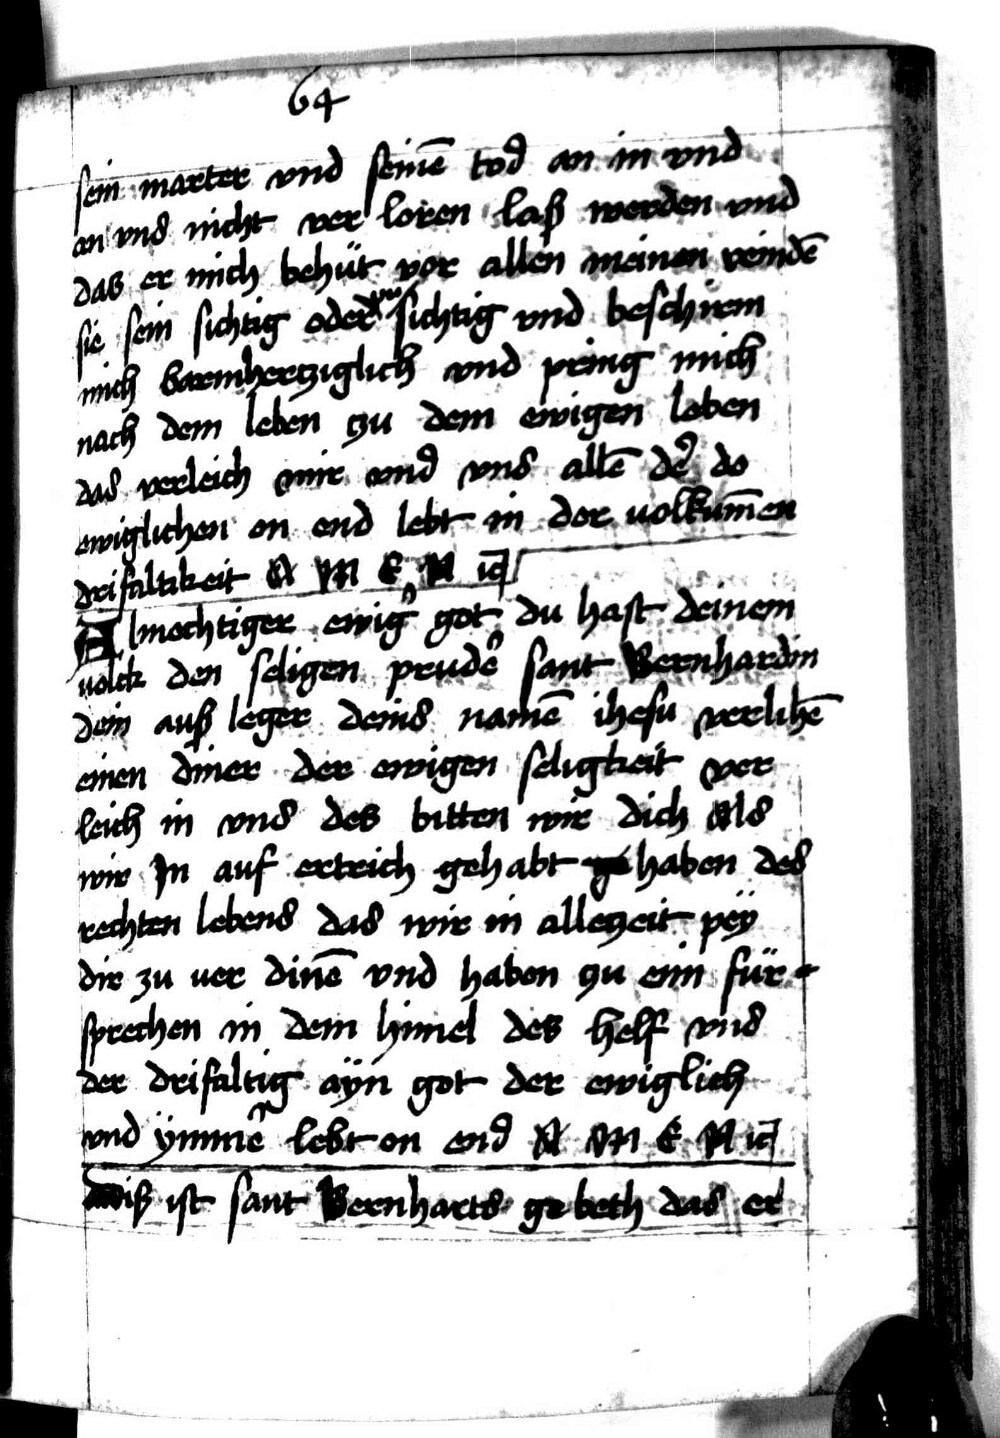 64
sein marter vnd seinē tod an in vnd
an vns nicht ver loren laß werden vnd
das er mich behüt vor allen meinen veindē
sie sein sichtig oder vn sichtig vnd beschirm
mich barmhertziglich vnd pring mich
nach dem leben zu dem ewigen leben
das verleich mir vnd vns allē der do
ewiglichen on end lebt in der uolkum̄en
drifaltikeit A M E N ic
Almechtiger ewiger got du hast deinem
uolck den seligen pruder sant Bernhardin
dein auß leger deins namē ihesu verlihē
einen diner der ewigen seligkeit ver
leich in vns des bitten wir dich Als
wir In auf ertrich gehabt haben des
rechten lebens das wir in allezeit pey̎
dir zu uer dinē vnd haben zu eim für-
sprechen in dem himel des helf vns
der drifaltig aÿn got der ewiglich
vnd ÿmmer lebt on end A M E N ic
diß ist sant Bernharts gebeth das er